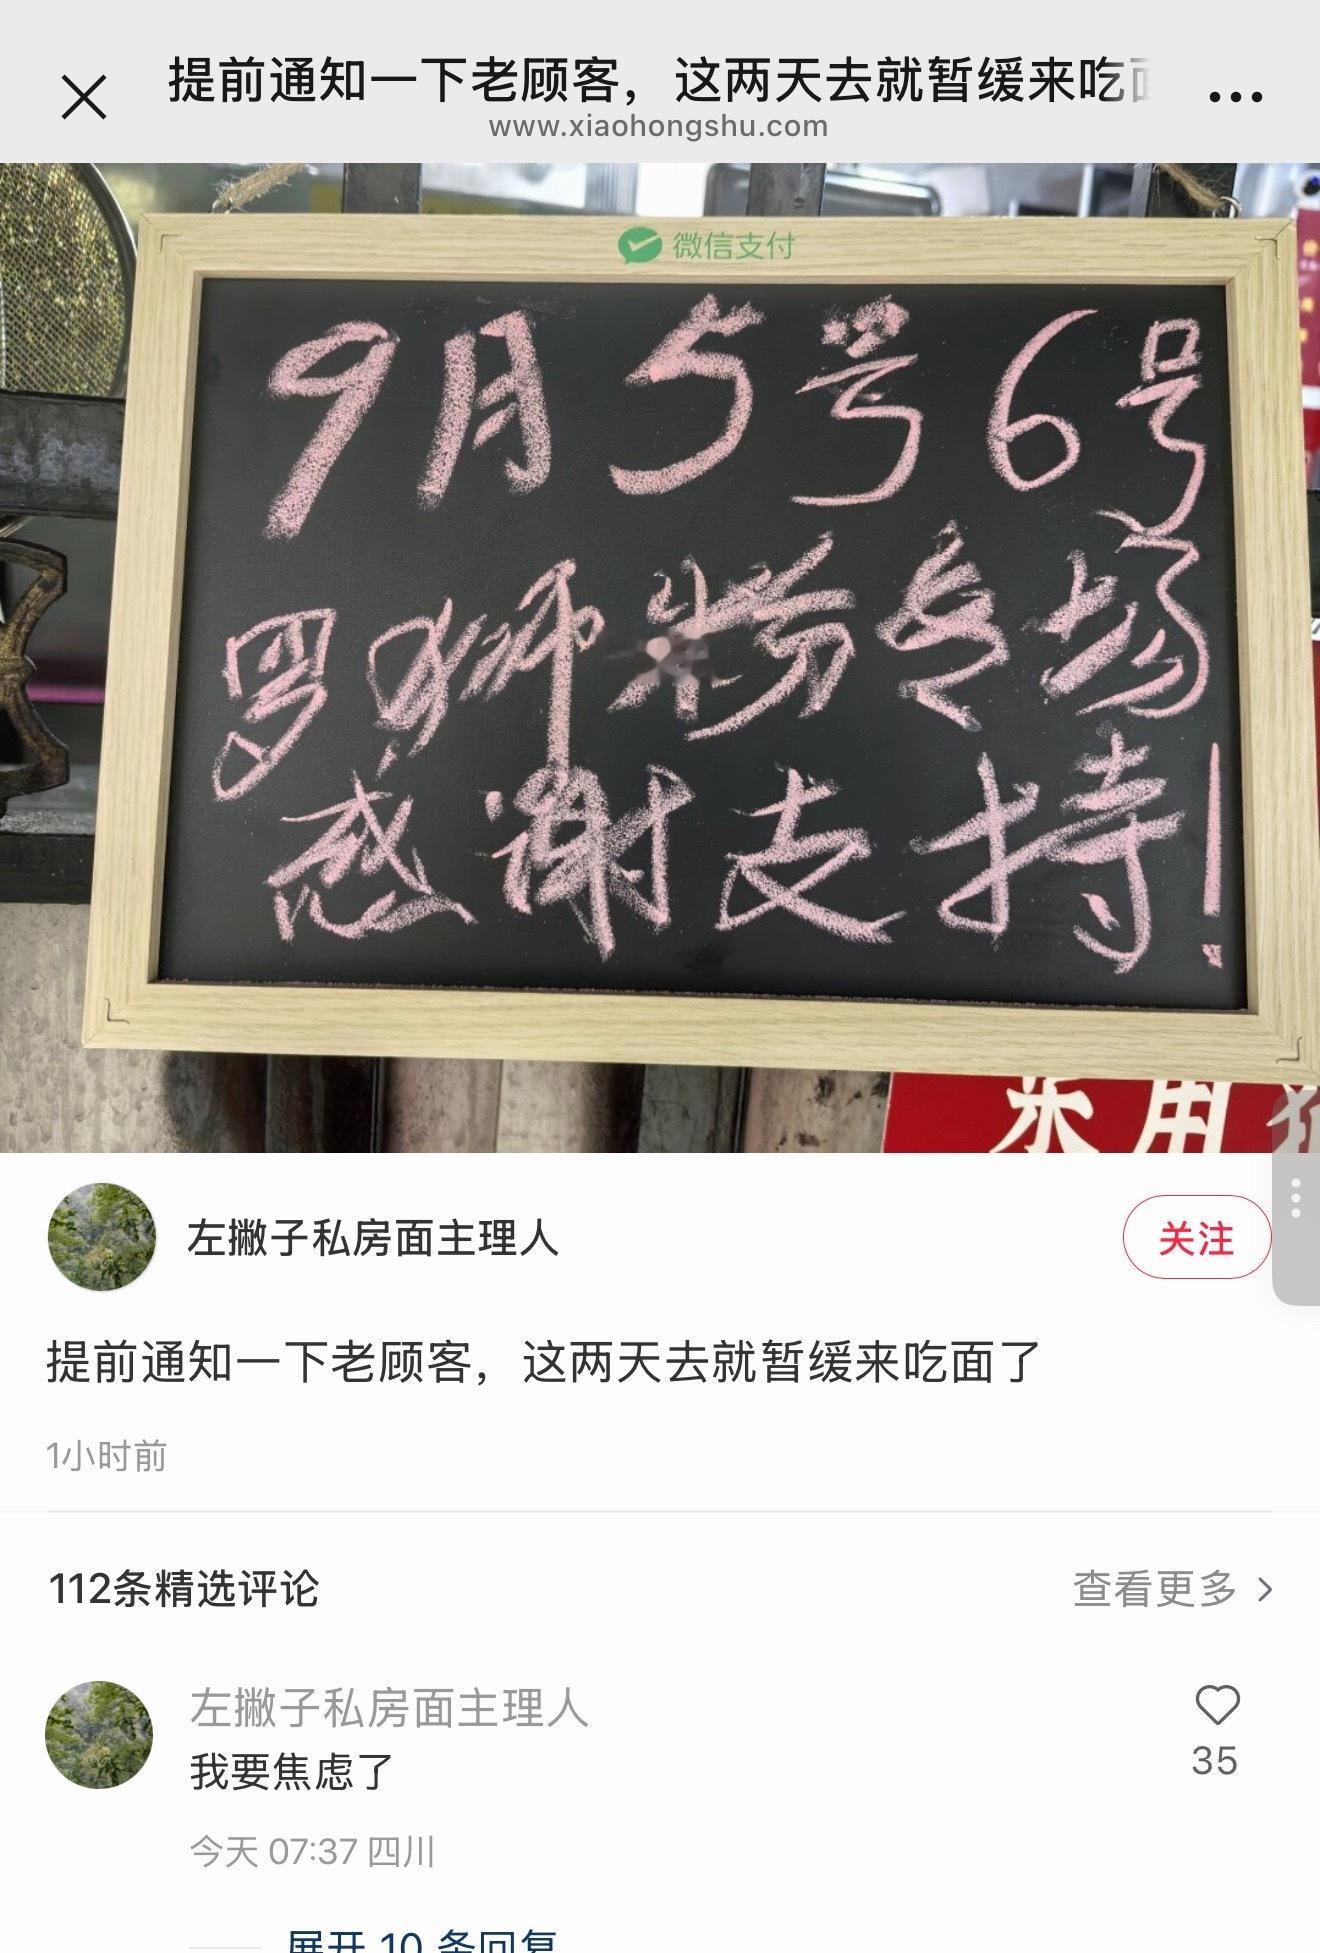 提前通知一下老顾客，这两天去就暂缓来吃面
www.xiaohongshu.com
微信支付
9月5号6号
罗狮粉专场
感谢支持！
采用
左撇子私房面主理人
关注
提前通知一下老顾客，这两天去就暂缓来吃面了
1小时前
112条精选评论
查看更多
左撇子私房面主理人
我要焦虑了
35
今天 07:37 四川
展开 10 条回复